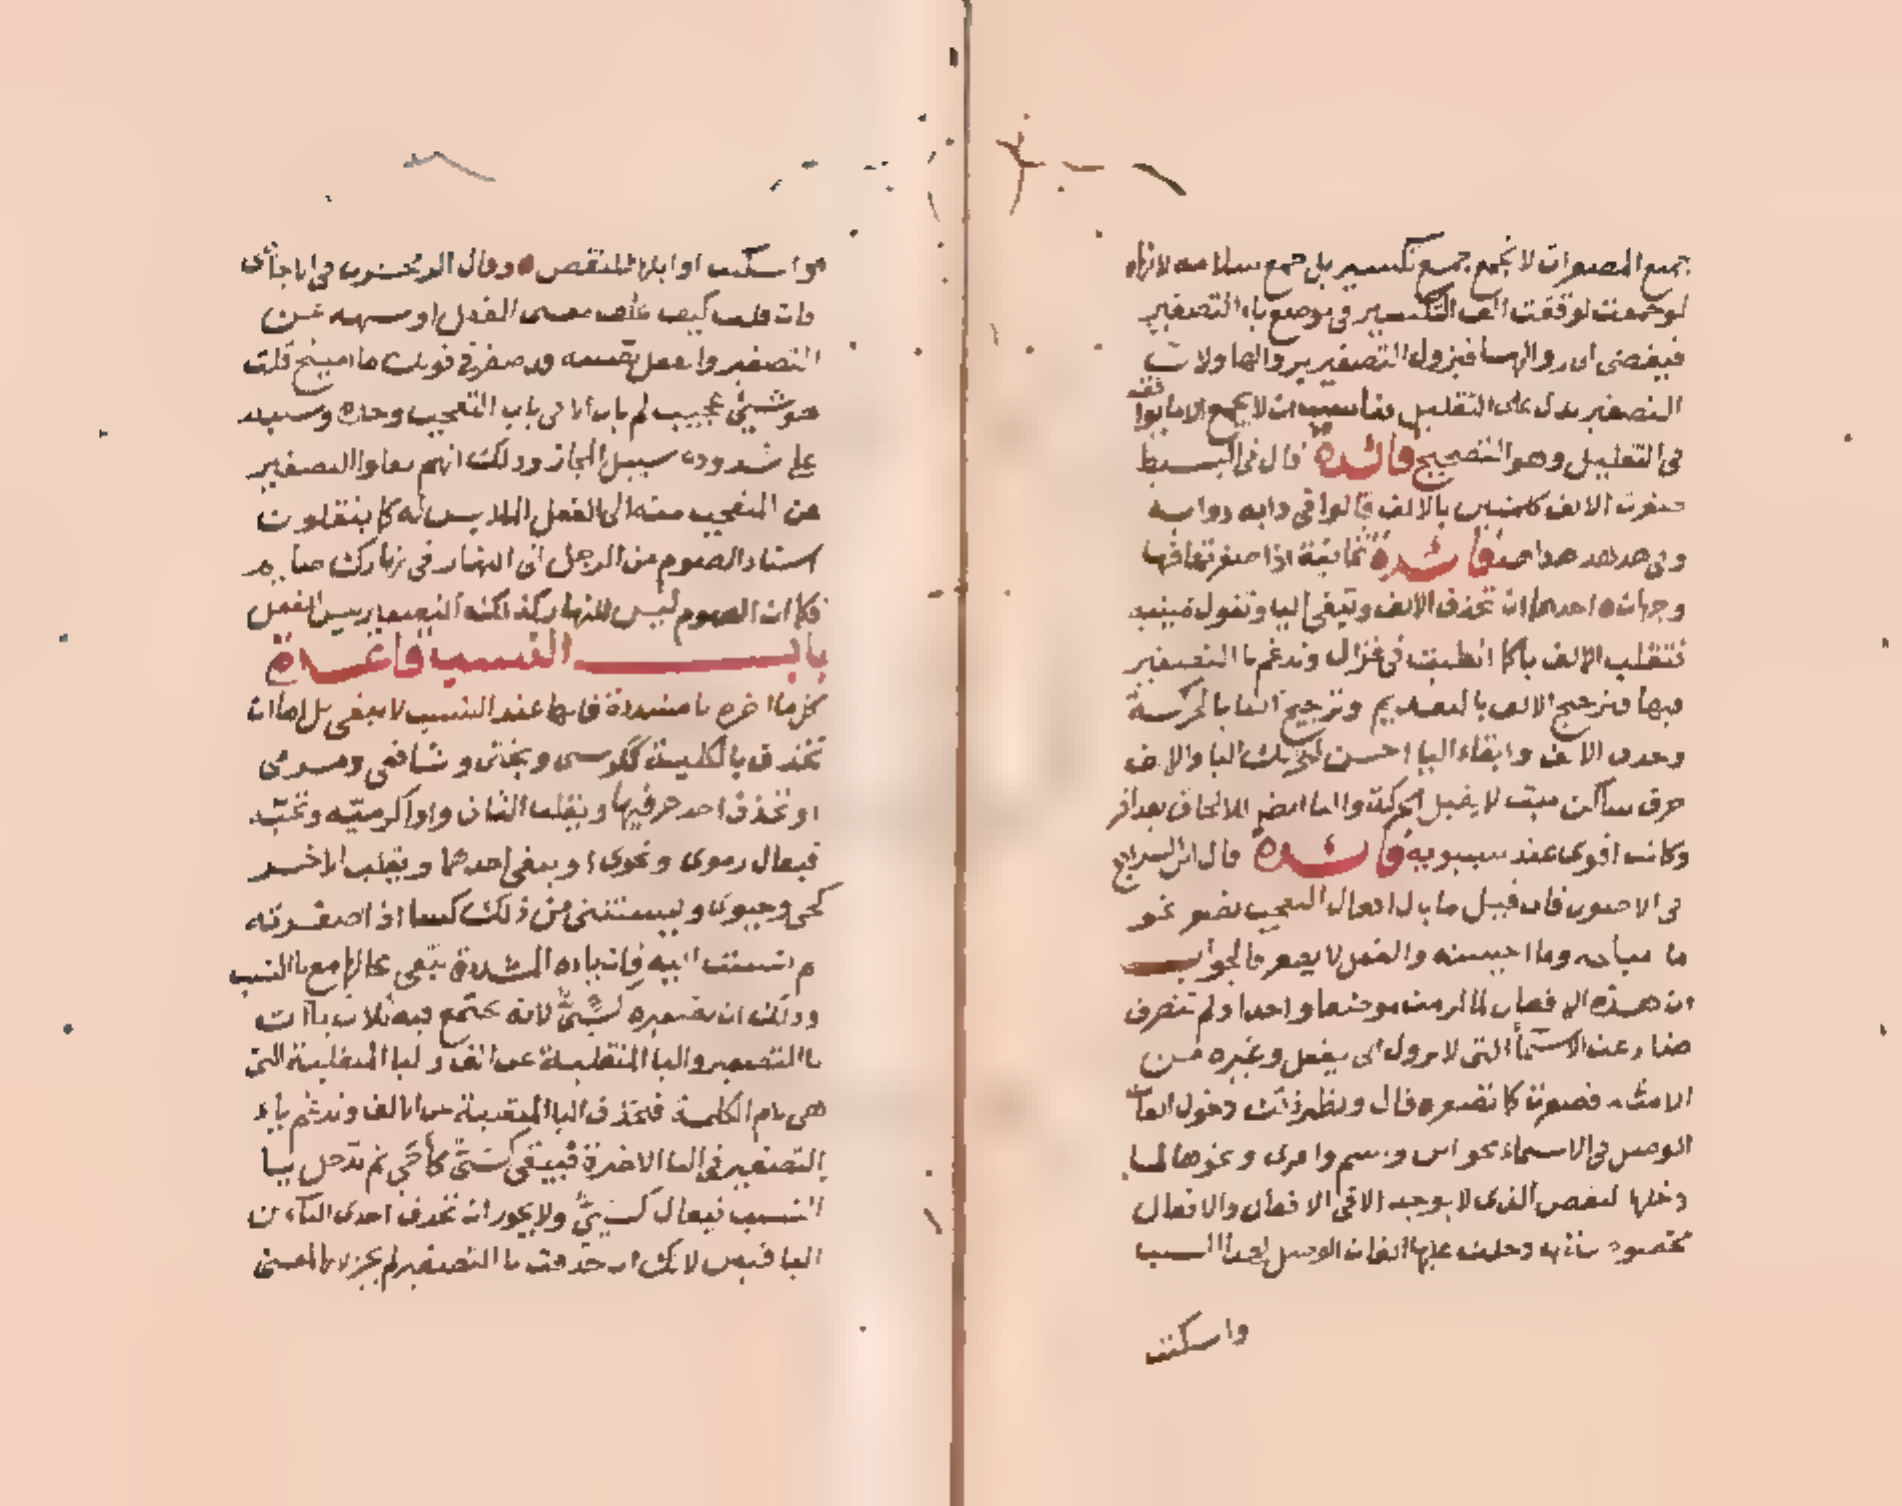 جميع المصغرات لا تجمع جمع تكسير بل جمع سلامة لانها
لو جمعت لوقعت الف التكسير في موضع ياء التصغير
فيفضي الى زوالها فيزول التصغير بزوالها ولان
التصغير يدل على التقليل فناسب ان لا يجمع الا ما يوافقه
في التقليل وهو التصحيح فائدة قال في البسيط
صغرت الالف كلمتين بالالف قالوا في دابة دوابة
وفي هدهد هداهد فائدة ثمانية اذا صغرتها فلها
وجهان احدهما ان تحذف الالف وتبقي اليا وتقول ثمينية
فتنقلب الالف ياء كما انقلبت في غزال وتدغم يا التصغير
فيها فترجيح الالف بالتقديم وترجيح اليا بالحركة
وحذف الالف وابقاء اليا احسن لتحرك اليا والالف
حرف ساكن ميت لا يقبل الحركة واليا ايضا للالحاق بعذافر
وكانت اقوى عند سيبويه فائدة قال ابن السراج
في الاصول فان قيل ما بال افعال التعجب تصغر نحو
ما اميلحه وما احيسنه والفعل لا يصغر فالجواب
ان هذه الافعال لما لزمت موضعا واحدا ولم تتصرف
ضارعت الاسماء التي لا تزول الى يفعل وغيره من
الامثلة فصغرت كما تصغر قال ونظير ذلك دخول الفات
الوصل في الاسماء نحو ابن واسم وامرئ ونحوها لما
دخلها النقص الذي لا يوجد الا في الافعال والافعال
مخصوصة به دخلت عليها الفات الوصل لهذا السبب
واسكنت
واسكنت اوايلها للنقص وقال الزمخشري في الاحاجي
فان قلت كيف علق معنى الفعل او شبهه عن
التصغير والفعل نفسه قد صغر في قولك ما اميلح قلت
هو شيء عجيب لم يات الا في باب التعجب وحده وسبيله
على شذوذه سبيل المجاز وذلك انهم نقلوا التصغير
من المتعجب منه الى الفعل الملابس له كما ينقلون
اسناد الصوم من الرجل الى النهار في نهارك صايم
فكما ان الصوم ليس للنهار كذلك التصغير ليس للفعل
باب النسب قاعدة
كل ما اخره يا مشددة فانها عند النسب لا تبقى بل اما ان
تحذف بالكلية ككرسي وبختي وشافعي ومرمي
او تحذف احد حرفيها ويقلب الثاني واوا كرمية وتحية
فيقال رموي وتحوي او يبقى احدهما ويقلب الاخر
كحي وحيوي ويستثنى من ذلك كساء اذا صغرته
ثم نسبت اليه فان ياءه المشددة تبقى بحالها مع يا النسب
وذلك ان تصغيره كسيّ لانه يجتمع فيه ثلاث ياآت
يا التصغير واليا المنقلبة عن الف واليا المنقلبة التي
هي لام الكلمة فتحذف اليا المنقلبة عن الالف وتدغم ياء
التصغير في اليا الاخيرة فيبقى كسيّ كاخيّ ثم تدخل يا
النسب فيقال كسييّ ولا يجوز ان تحذف احدى الياءين
الباقيتين لانك ان حذفت يا التصغير لم يجز لانها لمعنى